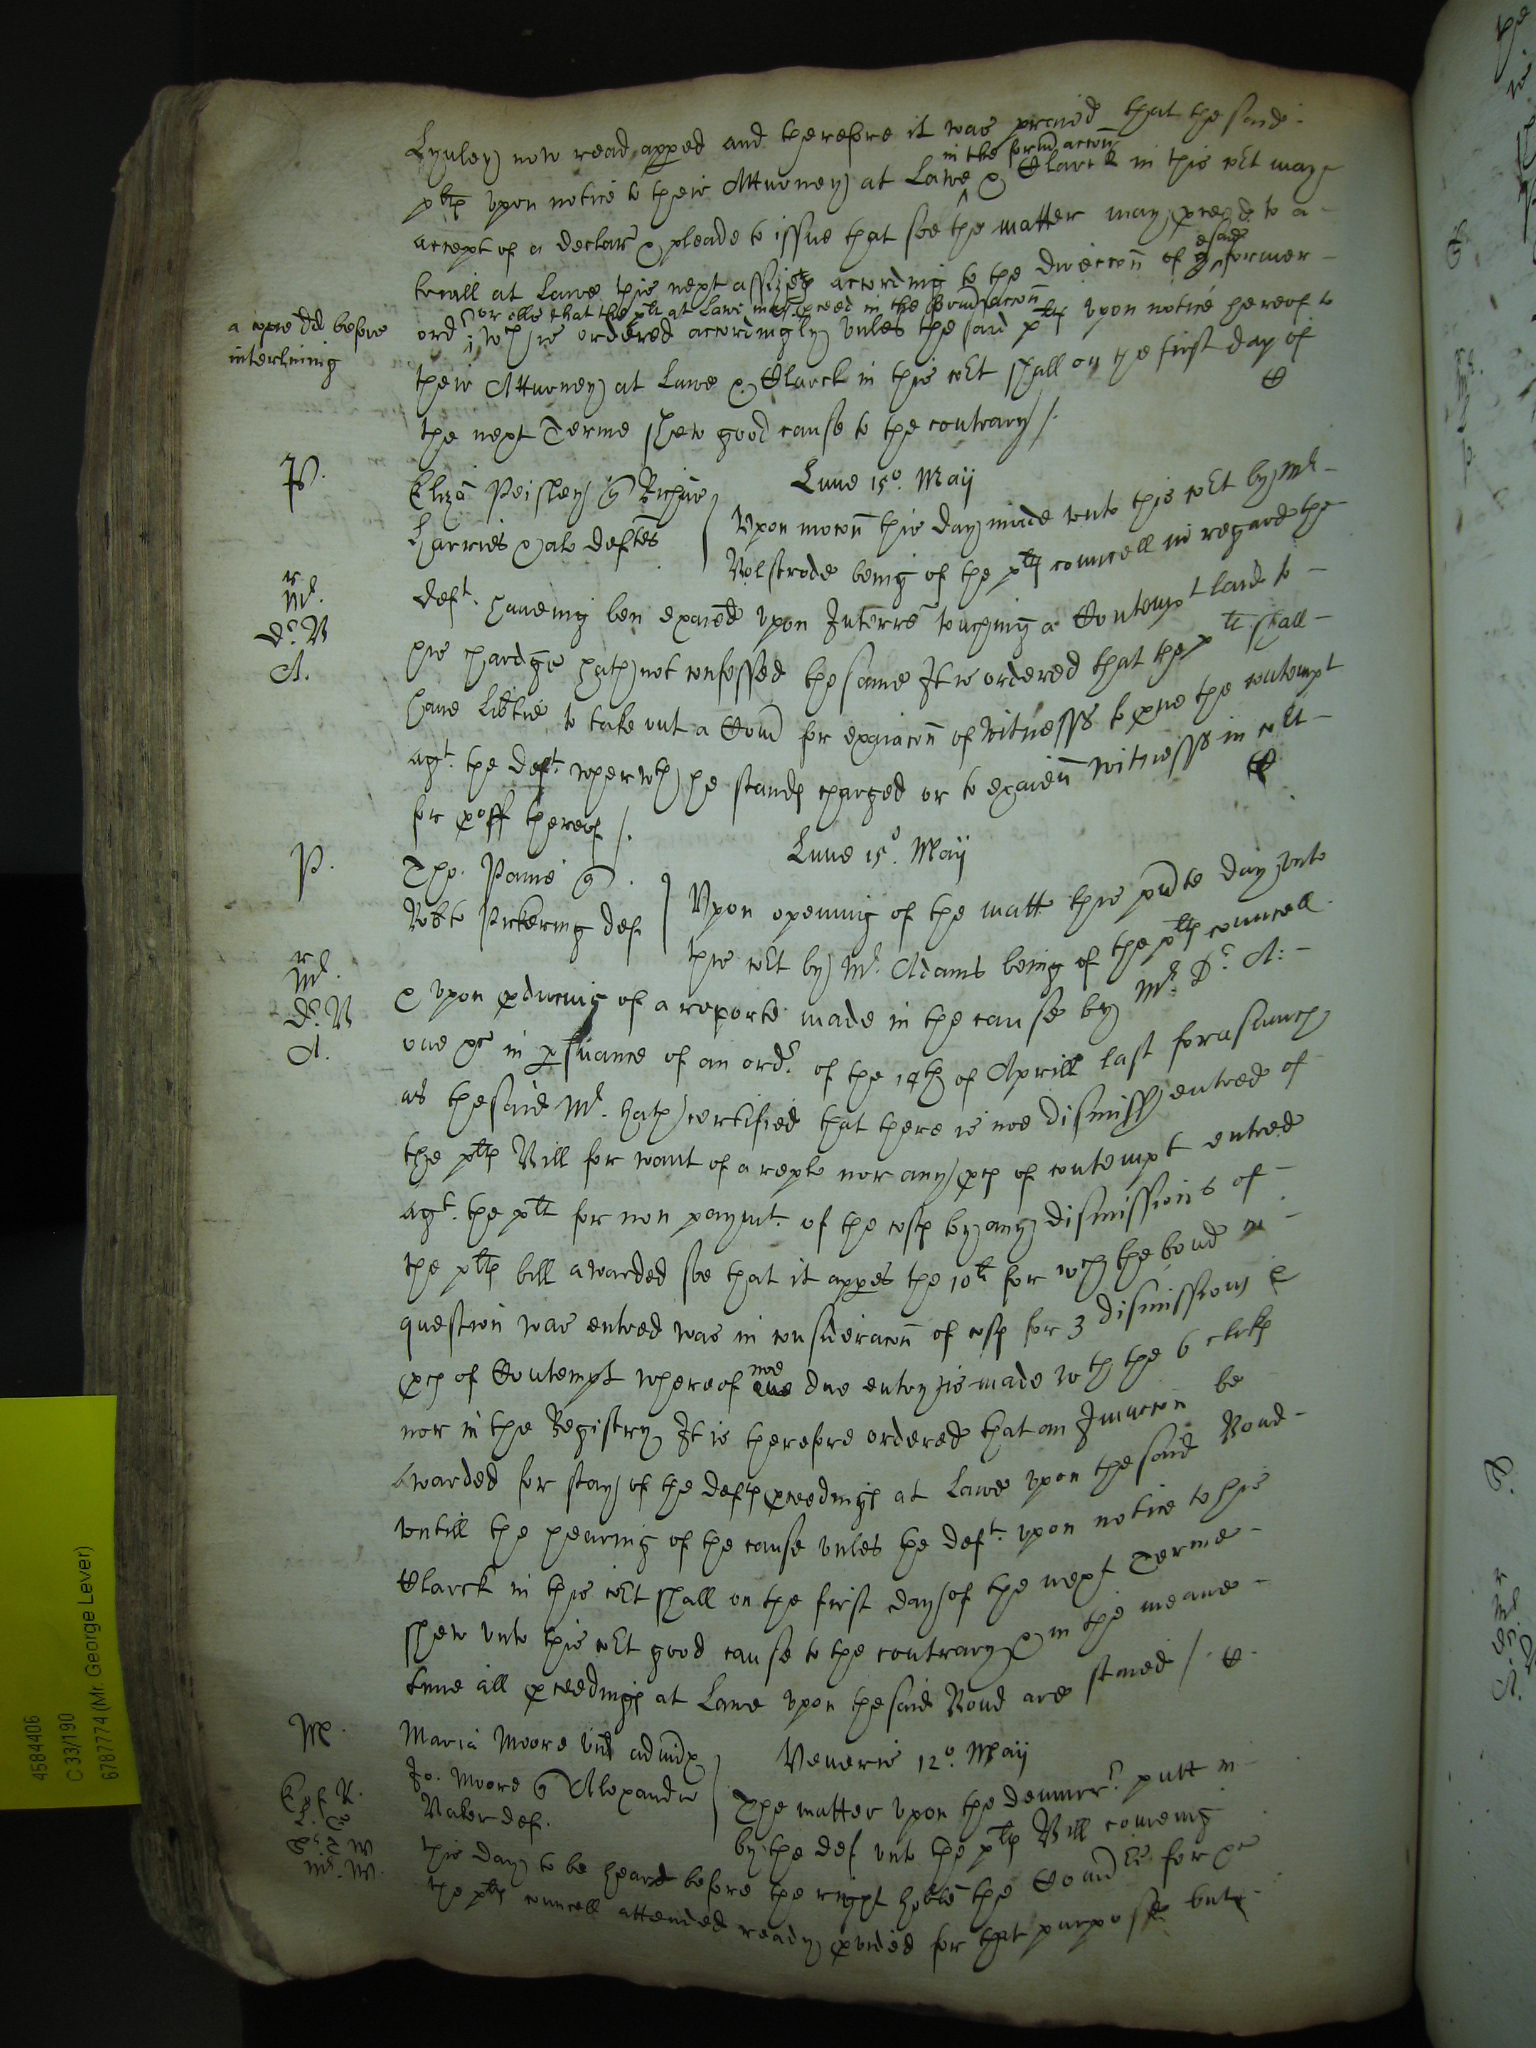 Lynley now read apped and therefore it was praied that the said
pltes upon notice to their Atturney at Lawe & Clarck in this Cort may
in the form<sup>r</sup> accon
accept of a declar & pleade to issue that soe the matter may pceed to a
triall at Lawe this next assizes according to the direccon of ye former
esaid
or else that the plt at Lawe may pceed in the said accon
ord<sup>r</sup> wch is ordered accordingly unles the said pltes upon notice hereof to
a copie dd before
interlining
their Atturney at Lawe & Clarck in this Cort shall on the first day of
the next Terme shew good cause to the contrary /.
P.
Eliza Peisley q Richus
Harries & al deftes
Lune 15o. Maij
Upon mocon this day made unto this Cort by Mr
Bolstrode being of the pltes councell in regard the
Mr.
Dr. B
A.
deft. haveing ben exaied upon Interr touching a Contempt laid to
his chardge hath not confessed the same It is ordered that the plt shall
have libtie to take out a Com for exaiacon of witnesses to pve the contempt
agt. the deft. wherwth he stands charged or to exaien witnesses in Cort
for pooff thereof /.
P.
Tho. Paine q.
Robte Pickering def
Lune 15o. Maij
Upon opening of the matt this psnte day unto
this Cort by Mr. Adams being of the pltes councell
Mr.
Dr. B
A.
& upon pducing of a reporte made in the cause by Mr. Dr. A:
one &c in psuance of an ordr. of the 14th of Aprill last forasmuch
as the said Mr. hath certified that there is noe dismiss entred of
the pltes Bill for want of a replc nor any pces of contempt entred
agt. the plt for non paymt. of the costs by any dismissions of
the pltes bill awarded soe that it appes the 10li for wch the bond in
question was entred was in consideracon of costs for 3 dismissions &
pces of Contempt whereof noe due entry is made wth the 6 clerks
nor in the Registry It is therefore ordered that an Iniuccon be
awarded for stay of the defts pceedings at Lawe upon the said Bond
untill the hearing of the cause unles the deft. upon notice to his
Clarck in this Cort shall on the first day of the next Terme
shew unto this Cort good cause to the contrary & in the meane
time all pceedings at Lawe upon the said Bond are staied /.
M.
Maria Moore vid admx
Jo. Moore q Alexandr
Baker def.
Veneris 12o. Maij
The matter upon the demurr. putt in
by the def unto the pltes Bill comeing
this day to be heard before the right hoble the Comrs for &c
the pltes councell attended ready pvided for that purpose but
4584406
C 33/190
6787774 (Mr. George Lever)